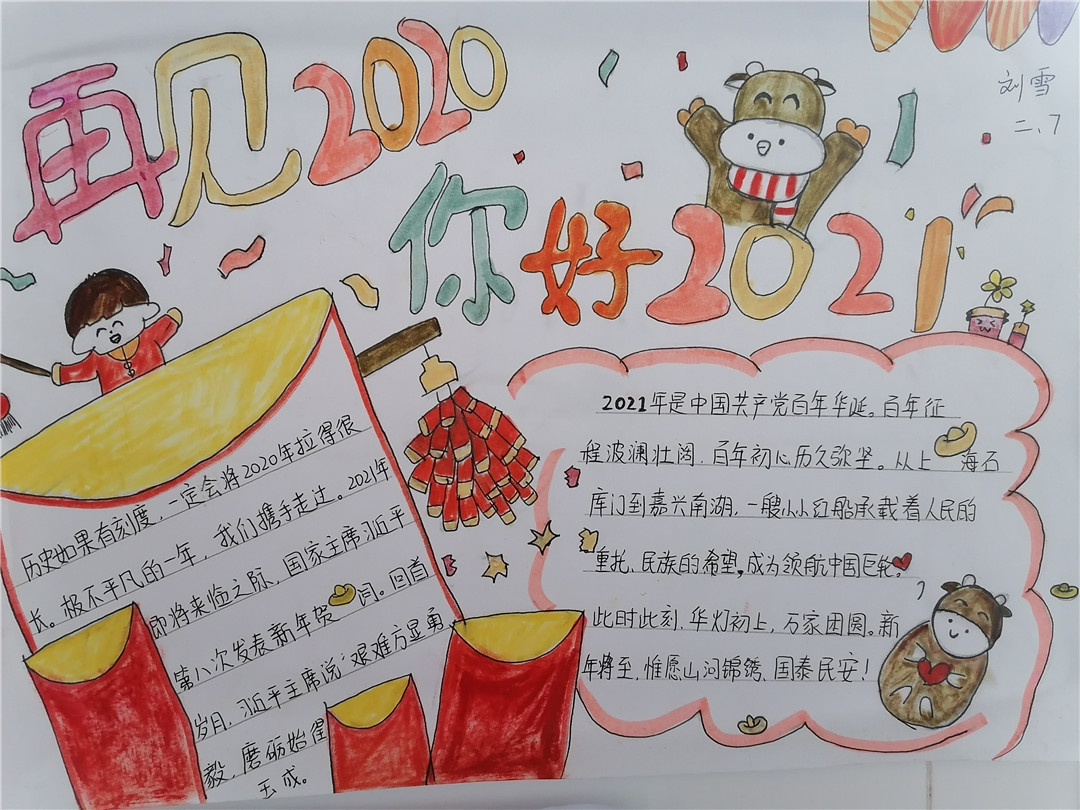 再见2020
刘雪
二、7
你好2021
历史如果有刻度，一定会将2020年拉得很
长。极不平凡的一年，我们携手走过。2021年
即将来临之际，国家主席习近平
第八次发表新年贺词。回首
岁月，习近平主席说“艰难方显勇
毅，磨砺始得
玉成。
2021年是中国共产党百年华诞。百年征
程波澜壮阔，百年初心历久弥坚。从上海石
库门到嘉兴南湖，一艘小小红船承载着人民的
重托、民族的希望，成为领航中国巨轮。
此时此刻，华灯初上，万家团圆。新
年将至，惟愿山河锦绣、国泰民安！